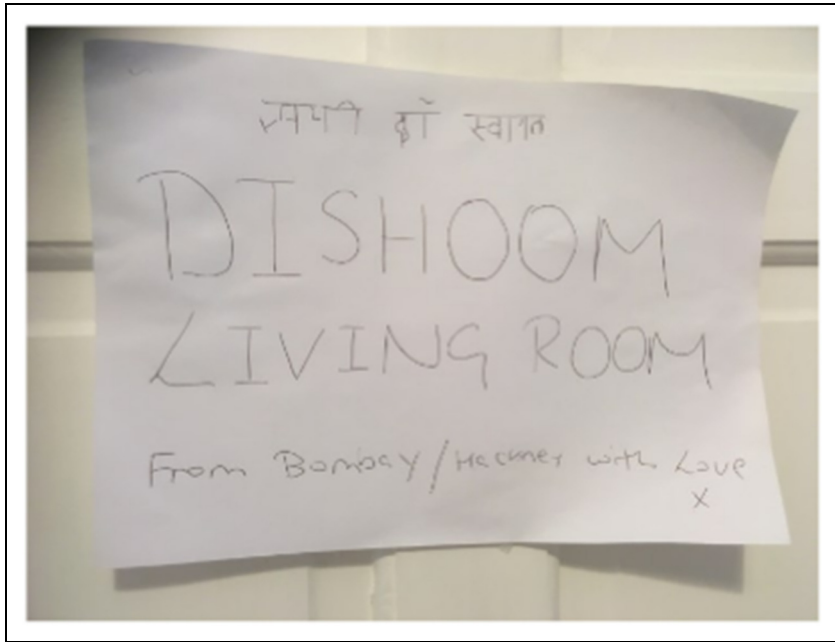 स्वागत
DISHOOM
LIVING ROOM
From Bombay/Hackney with Love
x